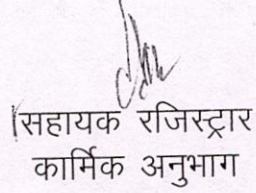 सहायक रजिस्ट्रार
कार्मिक अनुभाग